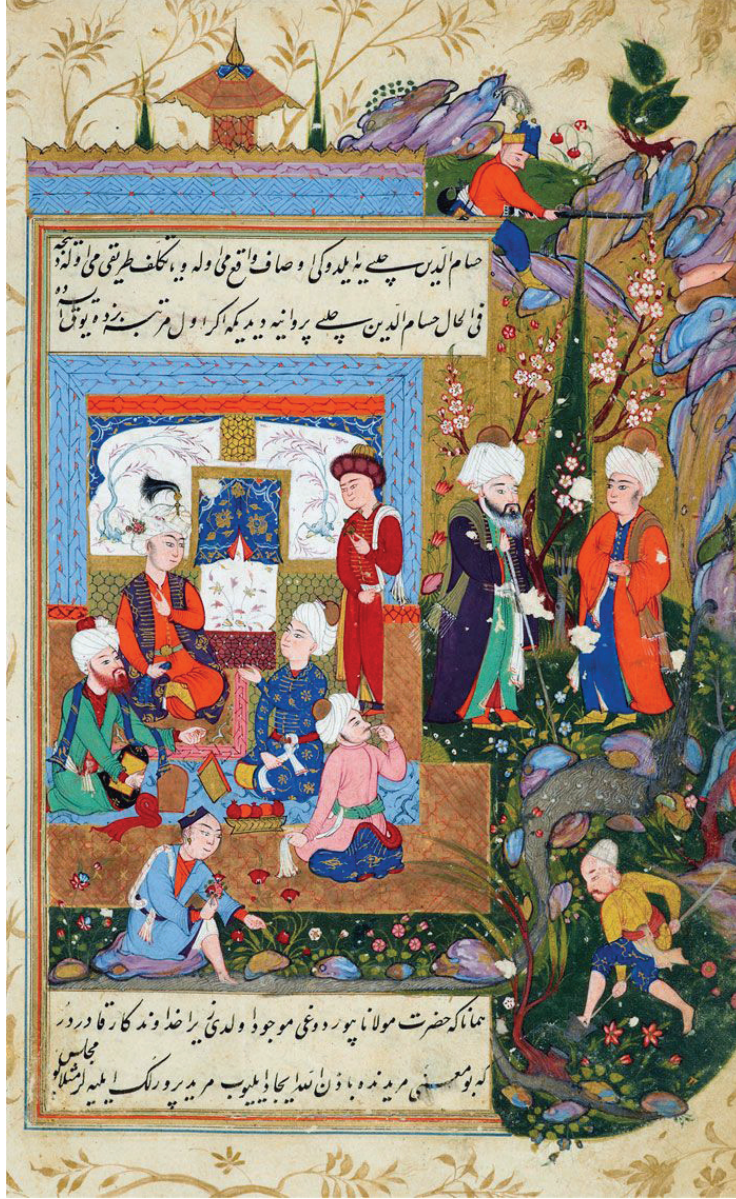 حسام الدین چلبی یه ایلدوکی اوصاف واقع می اوله و یا تکلف طریقی می اوله
فی الحال حسام الدین چلبی پروانیه دیدیکه اکر اول مرتبه بزده یوقیدی
همانا که حضرت مولانا بیوردوغی موجود اولدی زیرا خداوندکار قادردر
که بو معنی مریدنده باذن الله ایجاد ایلیوب مرید پرورلک ایلیه لر مثلا بو مجلس